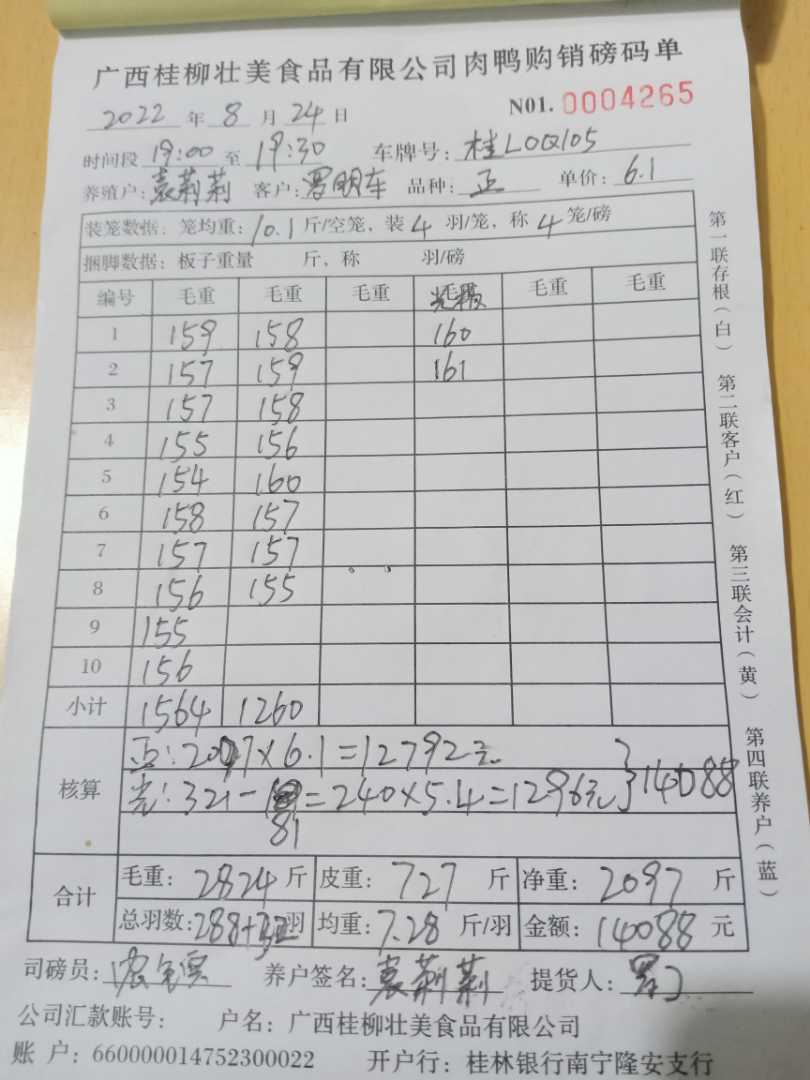 广西桂柳壮美食品有限公司肉鸭购销磅码单
2022 年 8 月 24 日 N01. 0004265
时间段 19:00 至 19:30 车牌号: 桂L0Q105
养殖户: 袁莉莉 客户: 罗明车 品种: 正 单价: 6.1
装笼数据: 笼均重: 10.1 斤/空笼, 装 4 羽/笼, 称 4 笼/磅
捆脚数据: 板子重量 斤, 称 羽/磅
编号 毛重 毛重 毛重 毛重 毛重
1 159 158 160
2 157 159 161
3 157 158
4 155 156
5 154 160
6 158 157
7 157 157
8 156 155
9 155
10 156
小计 1564 1260
核算 正: 2097×6.1=12792元
光: 321- =240×5.4=1296元 }14088
81
合计 毛重: 2824 斤 皮重: 727 斤 净重: 2097 斤
总羽数: 288+32羽 均重: 7.28 斤/羽 金额: 14088 元
司磅员: 养户签名: 袁莉莉 提货人:
公司汇款账号: 户名: 广西桂柳壮美食品有限公司
账 户: 660000014752300022 开户行: 桂林银行南宁隆安支行
第一联存根(白) 第二联客户(红) 第三联会计(黄) 第四联养户(蓝)